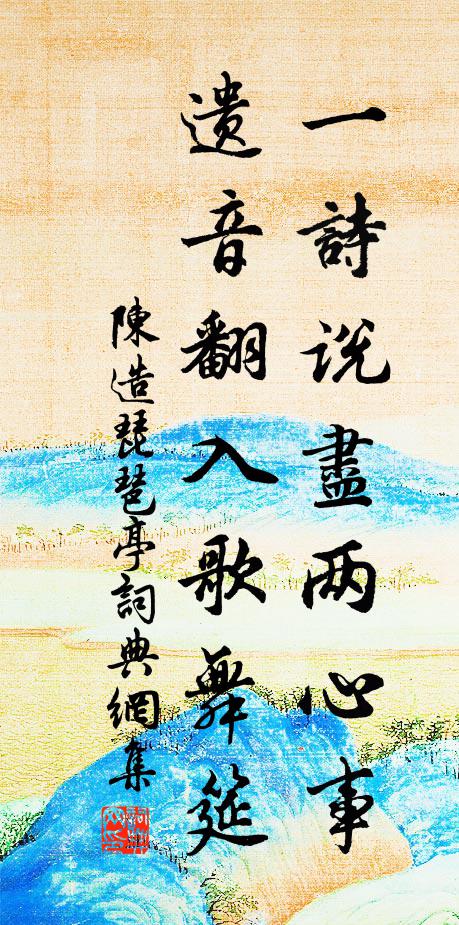 一詩说盡两心事
遺音翻入歌舞筵
陳造琵琶亭詞典網集